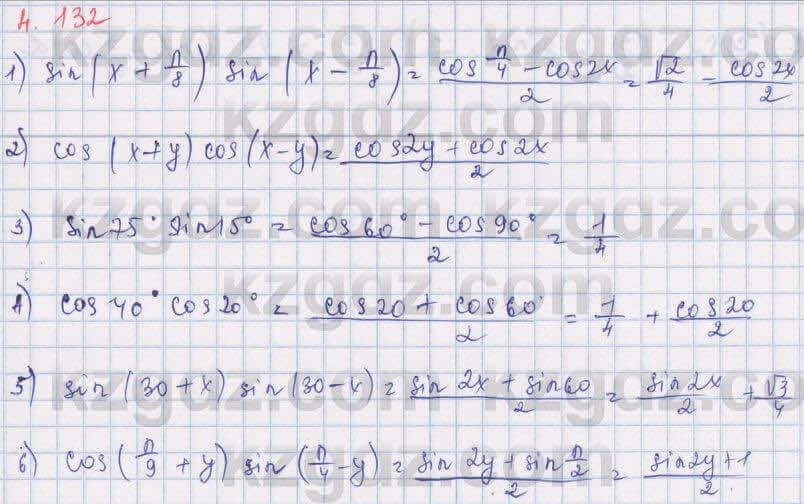 4. 132
1) sin(x + π/8) sin(x - π/8) = (cos π/4 - cos2x)/2 = √2/4 - cos2x/2
2) cos(x+y) cos(x-y) = (cos2y + cos2x)/2
3) sin75° sin15° = (cos60° - cos90°)/2 = 1/4
4) cos40° cos20° = (cos20 + cos60°)/2 = 1/4 + cos20/2
5) sin(30+x) sin(30-x) = (sin2x + sin60)/2 = sin2x/2 + √3/4
6) cos(π/9 + y) sin(π/4 - y) = (sin2y + sin π/2)/2 = (sin2y+1)/2
kzgdz.com